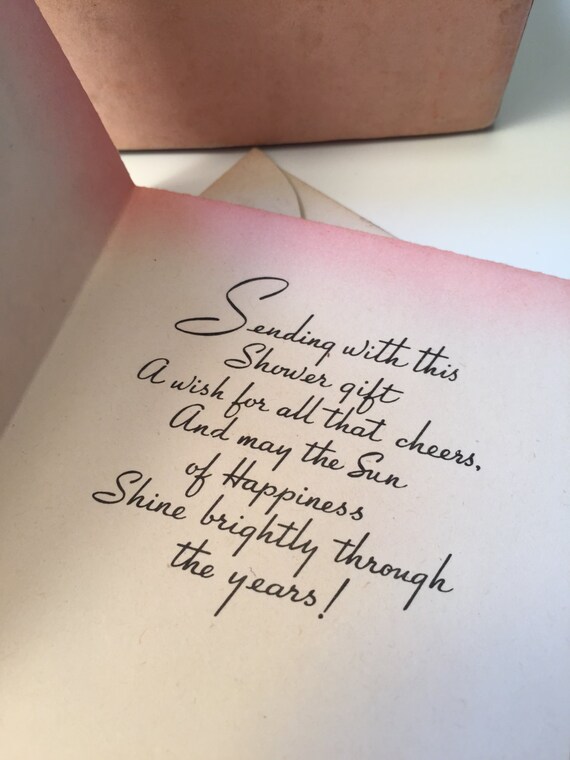 Sending with this
Shower gift
A wish for all that cheers,
And may the Sun
of Happiness
Shine brightly through
the years!